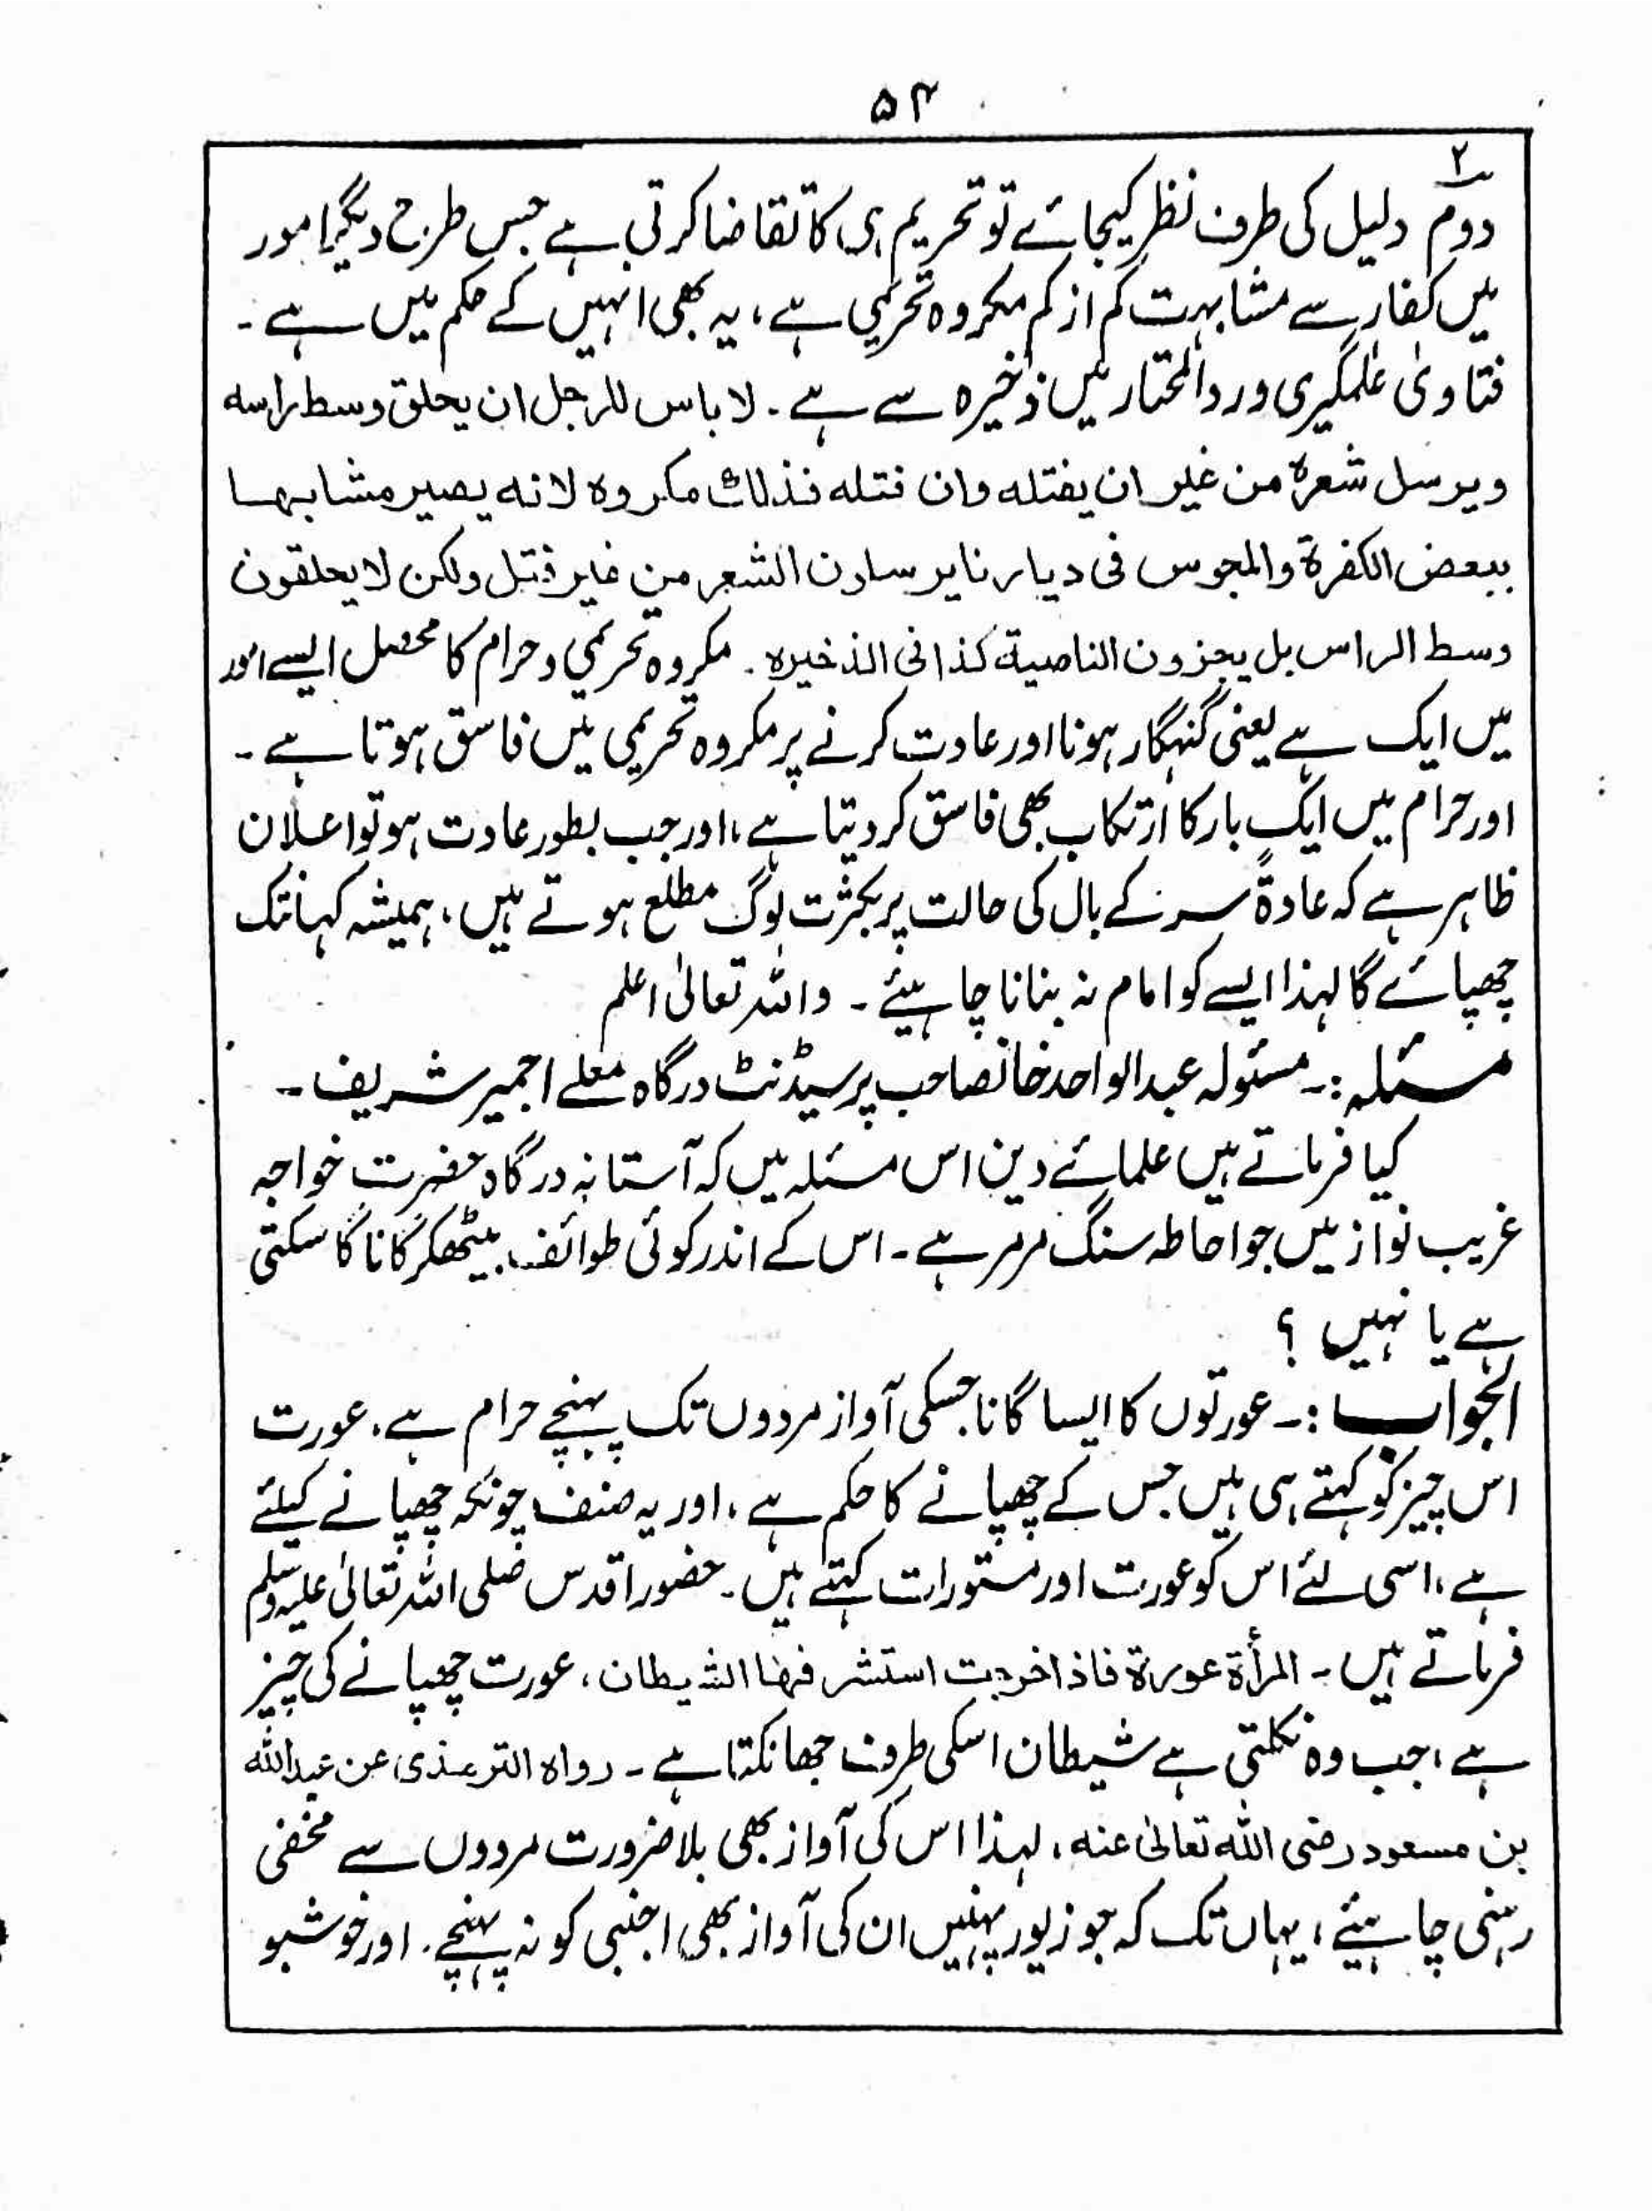 ۵۴
۲
دوم دلیل کی طرف نظر کیجائے تو تحریم ہی کا تقاضا کرتی ہے جس طرح دیگر امور
میں کفار سے مشابہت کم از کم مکروہ تحریمی ہے، یہ بھی انہیں کے حکم میں ہے ۔
فتاویٰ علمگیری و رد المحتار میں ذخیرہ سے ہے ۔ لا باس للرجل ان یحلق وسط راسه
ویرسل شعرہ من غیر ان یفتله وان فتله فذلك مکروہ لانه یصیر مشابها
ببعض الکفرة والمجوس فی دیارنا یرسلون الشعر من غیر فتل ولکن لا یحلقون
وسط الراس بل یجزون الناصیة کذا فی الذخیرہ ۔ مکروہ تحریمی و حرام کا محصل ایسے امور
میں ایک ہے یعنی گنہگار ہونا اور عادت کرنے پر مکروہ تحریمی میں فاسق ہوتا ہے ۔
اور حرام میں ایک بار کا ارتکاب بھی فاسق کر دیتا ہے، اور جب بطور عادت ہو تو اعلان
ظاہر ہے کہ عادةً سر کے بال کی حالت پر بکثرت لوگ مطلع ہوتے ہیں، ہمیشہ کہانتک
چھپائے گا لہذا ایسے کو امام نہ بنانا چاہیئے ۔ واللہ تعالیٰ اعلم
مسئلہ :۔ مسئولہ عبدالواحد خانصاحب پرسیڈنٹ درگاہ معلے اجمیر شریف ۔
کیا فرماتے ہیں علمائے دین اس مسئلہ میں کہ آستانہ درگاہ حضرت خواجہ
غریب نواز میں جو احاطہ سنگ مرمر ہے ۔ اس کے اندر کوئی طوائف بیٹھکر گانا گا سکتی
ہے یا نہیں ؟
الجواب :۔ عورتوں کا ایسا گانا جسکی آواز مردوں تک پہنچے حرام ہے، عورت
اس چیز کو کہتے ہی ہیں جس کے چھپانے کا حکم ہے، اور یہ صنف چونکہ چھپانے کیلئے
ہے، اسی لئے اس کو عورت اور مستورات کہتے ہیں ۔ حضور اقدس صلی اللہ تعالیٰ علیہ وسلم
فرماتے ہیں ۔ المرأة عورة فاذا خرجت استشرفها الشیطان، عورت چھپانے کی چیز
ہے، جب وہ نکلتی ہے شیطان اسکی طرف جھانکتا ہے ۔ رواہ الترمذی عن عبدالله
بن مسعود رضی الله تعالیٰ عنه، لہذا اس کی آواز بھی بلا ضرورت مردوں سے مخفی
رہنی چاہیئے، یہاں تک کہ جو زیور پہنیں ان کی آواز بھی اجنبی کو نہ پہنچے ۔ اور خوشبو